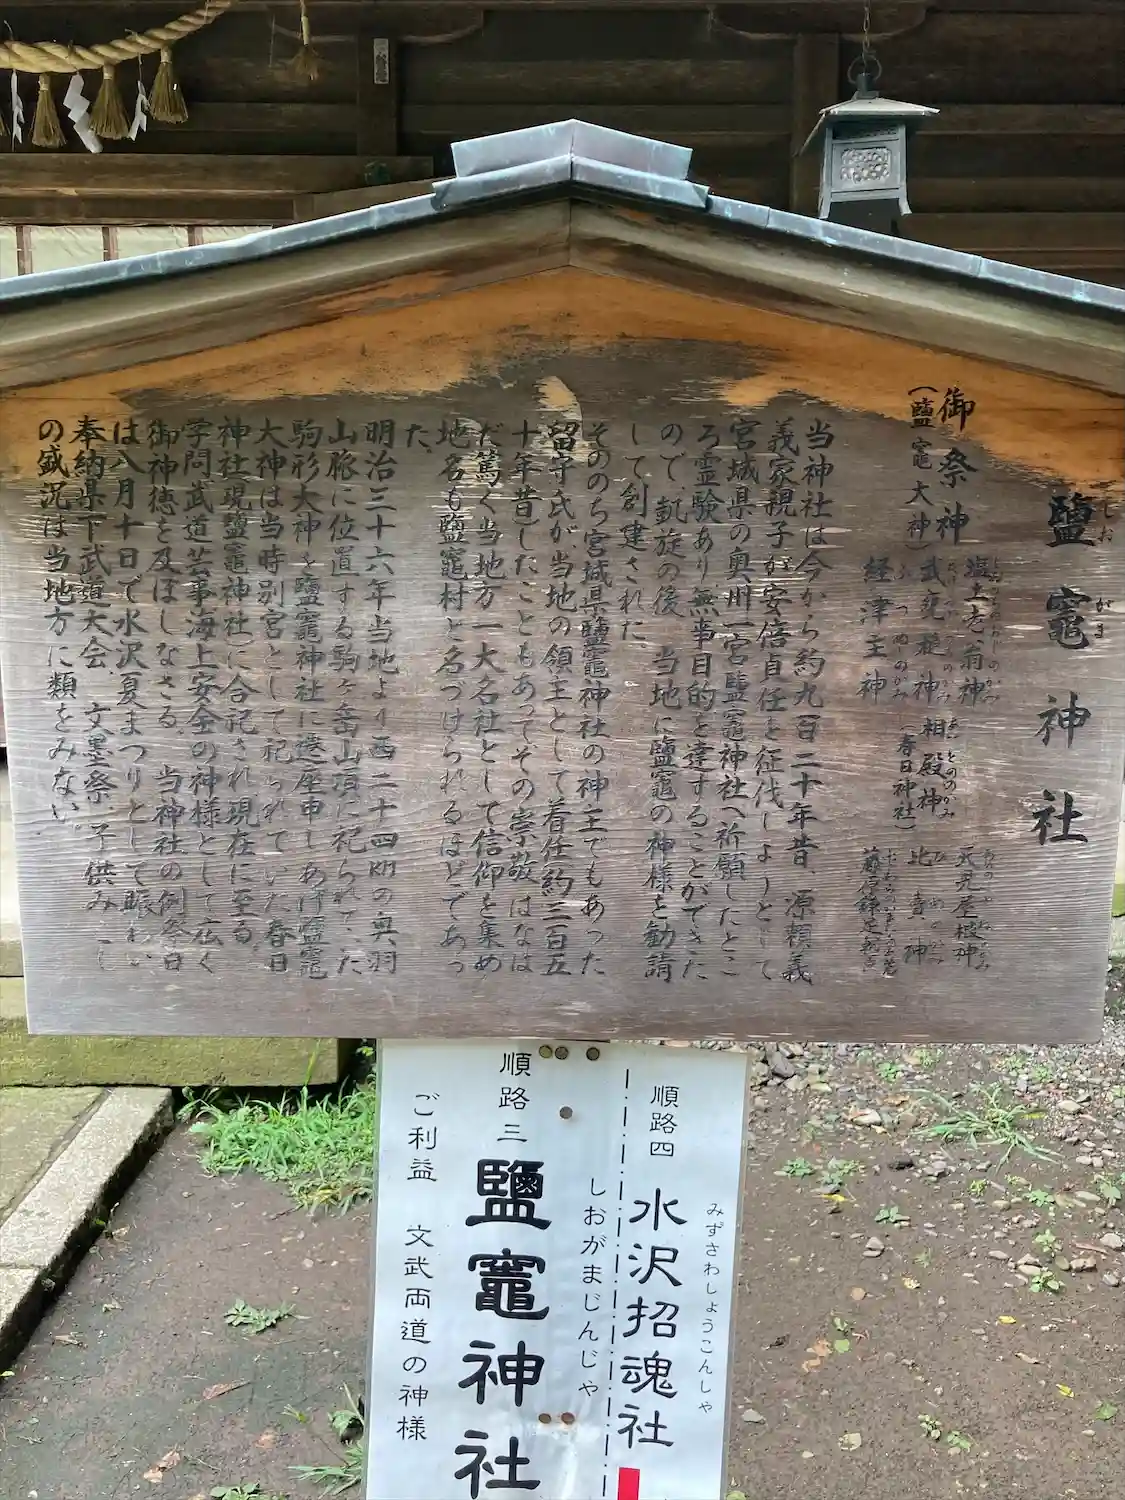 鹽竈神社
しおがま
御祭神
(鹽竈大神)
塩土老翁神
武甕槌神
経津主神
相殿神
(春日神社)
天児屋根神
比売神
当神社は今から約九百二十年昔、源頼義
義家親子が安倍貞任を征伐しようとして
宮城県の奥州一宮鹽竈神社へ祈願したとこ
ろ霊験あり、無事目的を達することができた
ので、凱旋の後、当地に鹽竈の神様を勧請
して創建された
そののち宮城県鹽竈神社の神主でもあった
留守氏が、当地の領主として着任約三百五
十年昔したこともあってその崇敬はなは
だ篤く当地方一大名社として信仰を集め
地名も鹽竈村と名づけられるほどであっ
た、
明治三十六年当地より西二十四㎞の奥羽
山脈に位置する駒ヶ岳山頂に祀られていた
駒形大神を鹽竈神社に遷座申しあげ鹽竈
大神は当時別宮として祀られていた春日
神社(現鹽竈神社)に合祀され現在に至る。
学問武道芸事海上安全の神様として広く
御神徳を及ぼしなさる、当神社の例祭日
は八月十日で水沢夏まつりとして賑わい
奉納県下武道大会、文墨祭、子供みこし
の盛況は当地方に類をみない。
順路四 水沢招魂社
みずさわしょうこんしゃ
しおがまじんじゃ
順路三 鹽竈神社
ご利益 文武両道の神様